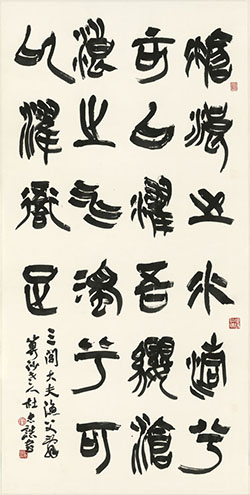 滄浪之水清兮
可以濯吾纓滄
浪之水濁兮可
以濯吾足
三閭大夫漁父辭
老人杜忠誥